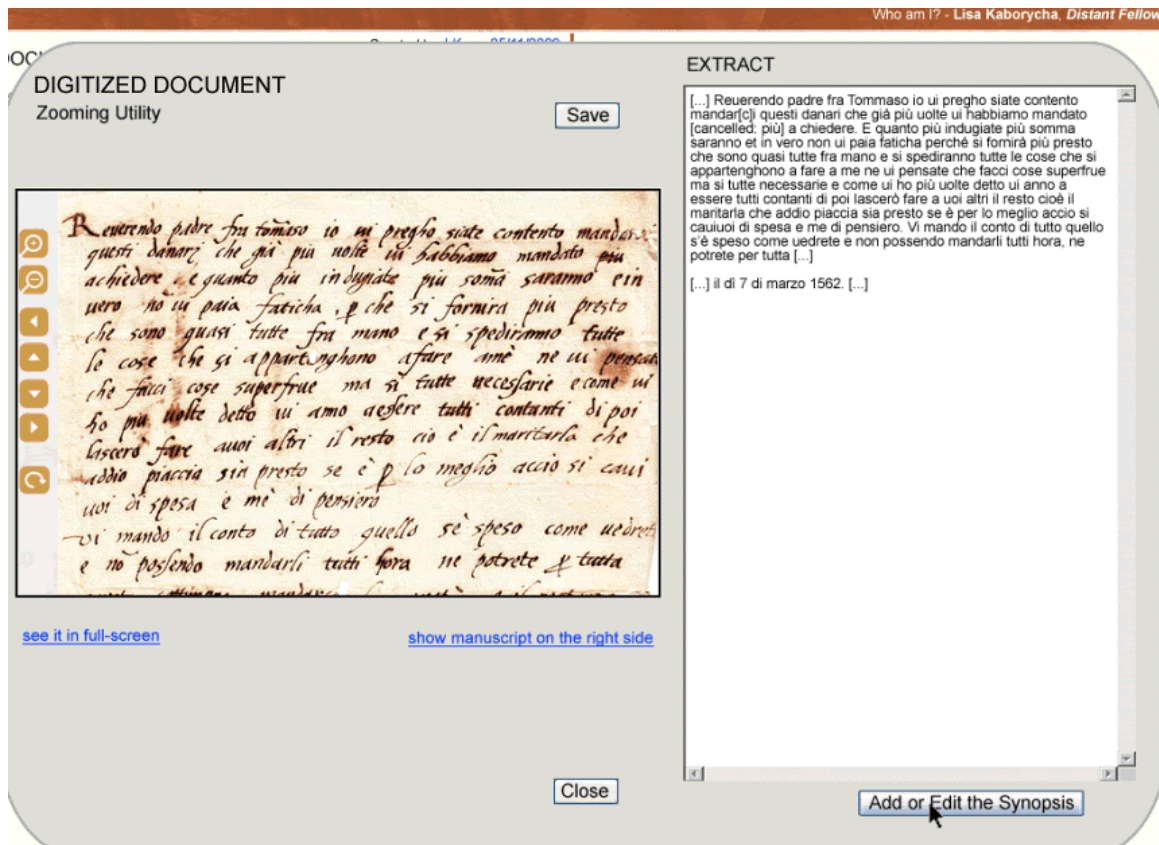 Who am I? - Lisa Kaborycha, Distant Fellow
DIGITIZED DOCUMENT
Zooming Utility
Save
Reuerendo padre fra tomaso io ui pregho siate contento
questi danari che già più uolte ui habbiamo mandato più
achiedere . e quanto più indugiate più soma saranno e in
uero nō ui paia faticha , p che si fornira più presto
che sono quasi tutte fra mano e si spediranno tutte
le cose che si appartenghono afare amè ne ui pensate
che facci cose superfrue ma si tutte necessarie e come ui
ho più uolte detto ui anno aessere tutti contanti di poi
lascerò fare auoi altri il resto cio è il maritarla che
addio piaccia sia presto se è p lo meglio accio si caui
uoi di spesa e mè di pensiero
vi mando il conto di tutto quello sè speso come uedret
e nō possendo mandarli tutti hora ne potrete p tutta
see it in full-screen
show manuscript on the right side
Close
EXTRACT
[...] Reuerendo padre fra Tommaso io ui pregho siate contento
mandar[c]i questi danari che già più uolte ui habbiamo mandato
[cancelled: più] a chiedere. E quanto più indugiate più somma
saranno et in vero non ui paia faticha perché si fornirà più presto
che sono quasi tutte fra mano e si spediranno tutte le cose che si
appartenghono a fare a me ne ui pensate che facci cose superfrue
ma si tutte necessarie e come ui ho più uolte detto ui anno a
essere tutti contanti di poi lascerò fare a uoi altri il resto cioè il
maritarla che addio piaccia sia presto se è per lo meglio accio si
cauiuoi di spesa e me di pensiero. Vi mando il conto di tutto quello
s'è speso come uedrete e non possendo mandarli tutti hora, ne
potrete per tutta [...]
[...] il dì 7 di marzo 1562. [...]
Add or Edit the Synopsis